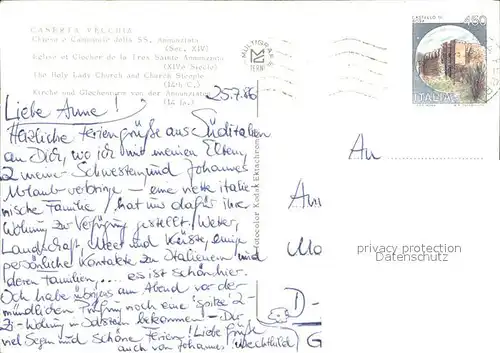 CASERTA VECCHIA
Chiesa e Campanile della SS. Annunziata
(Sec. XIV)
Eglise et Clocher de la Tres Sainte Annunziata
(XIVe Siecle)
The Holy Lady Church and Church Steeple
(14th C.)
Kirche und Glockenturm von der Annunziata
(14 Jh.)
MULTIGRAF
TERNI
CASTELLO DI
450
ITALIA
25.7.86
Liebe Anne!
Herzliche Feriengrüße aus Süditalien
an Dich, wo ich mit meinen Eltern,
2 meiner Schwestern und Johannes
Urlaub verbringe – eine nette italie-
nische Familie hat uns dafür ihre
Wohnung zur Verfügung gestellt. Wetter,
Landschaft, Meer und Küste, einige
persönliche Kontakte zu Italienern und
deren Familien,... es ist schön hier.
Ich habe übrigens am Abend vor der
mündlichen Prüfung noch eine 'spitze' 2-
Zi-Wohnung in Idstein bekommen – Dir
viel Segen und schöne Ferien! Liebe Grüße
auch von Johannes, Mechthild
Fotocolor Kodak Ektachrome
An
D-
G
privacy protection
Datenschutz